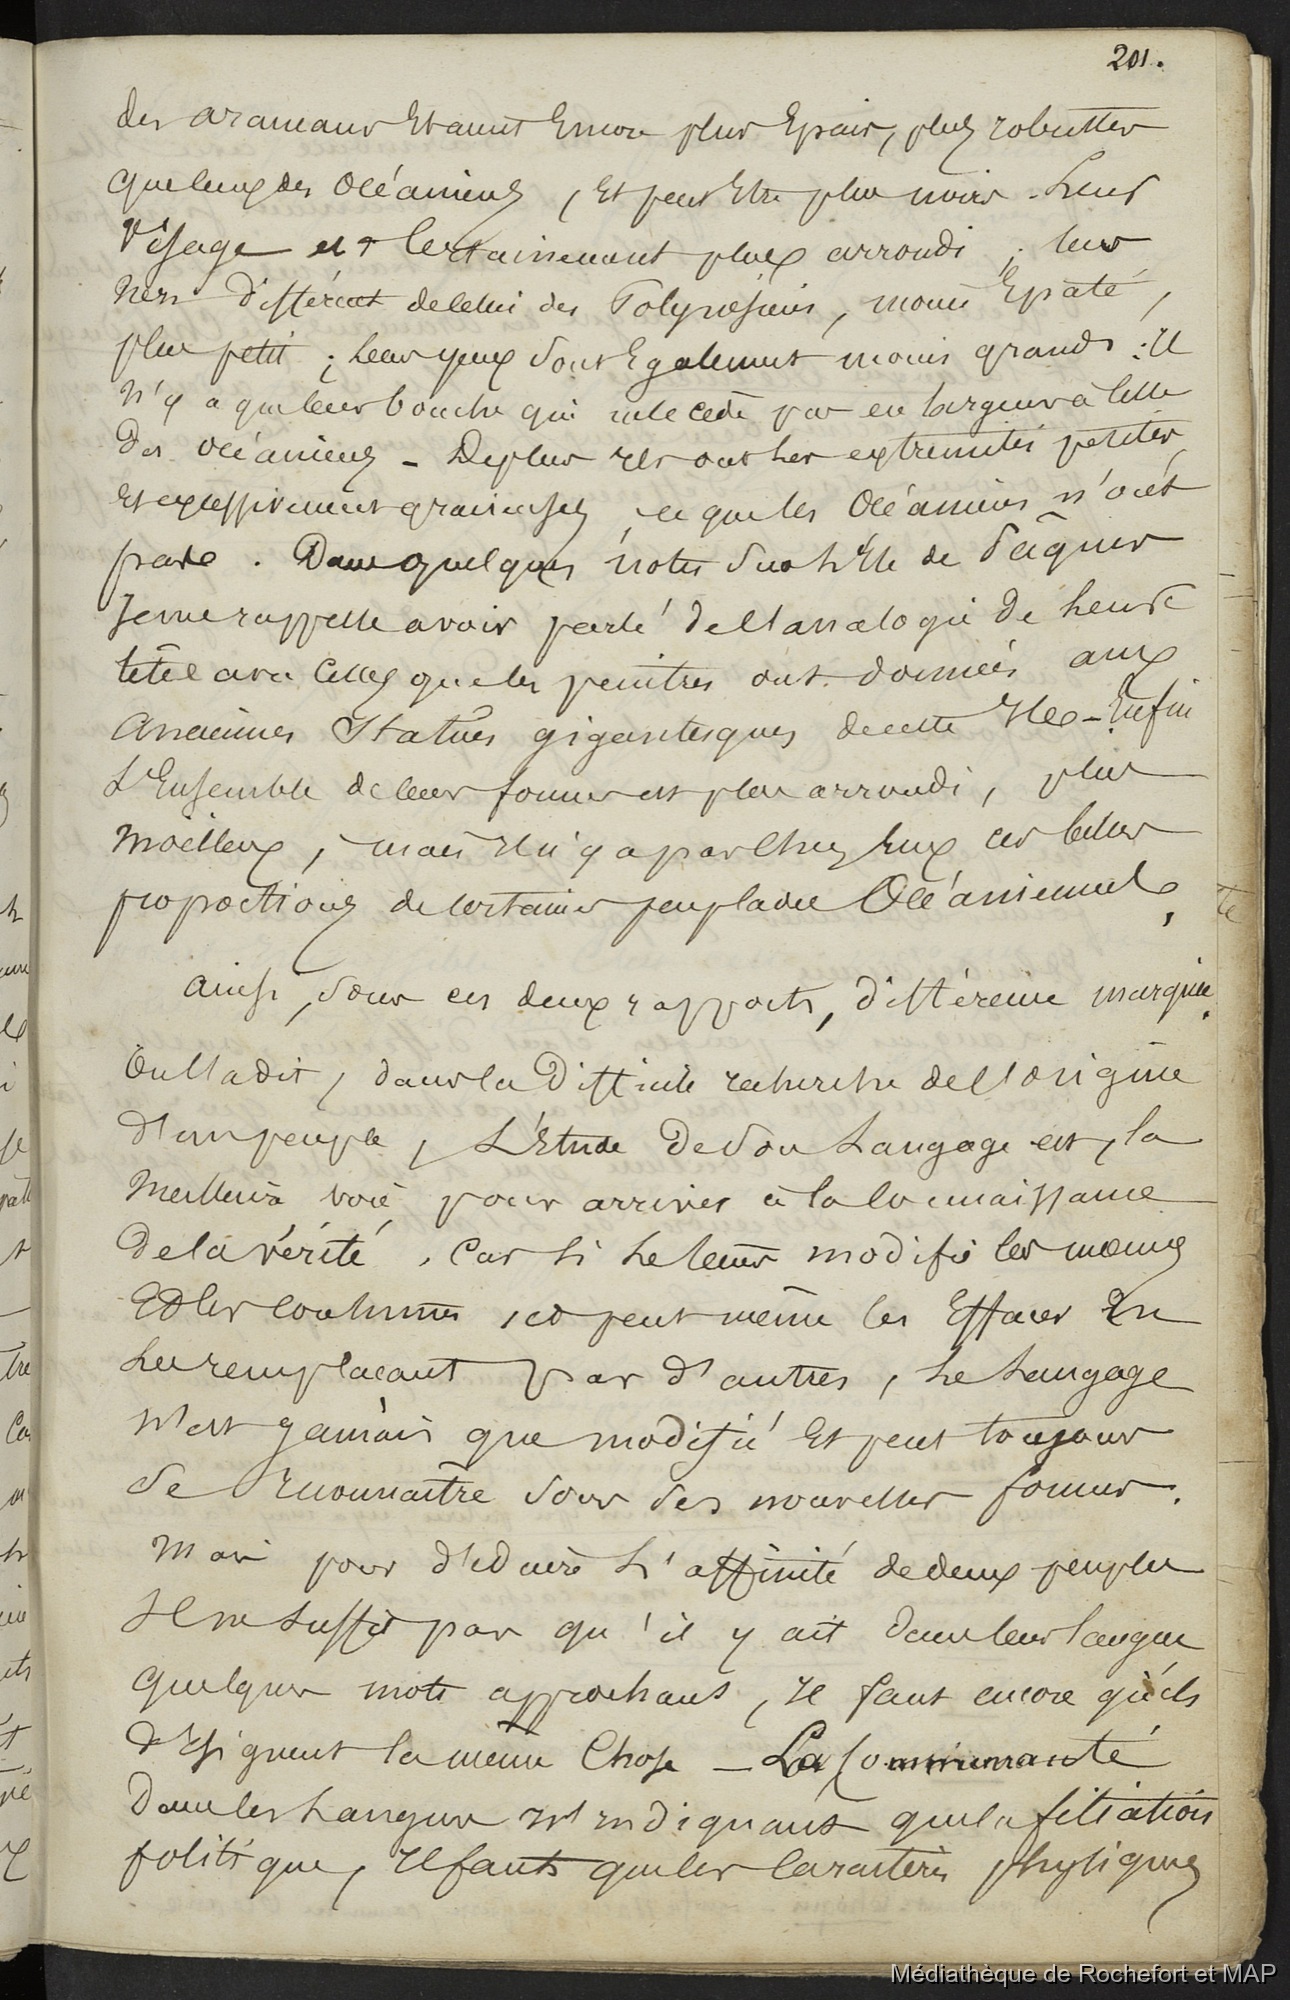 201.
des araucans étant Encore plus Epais, plus robustes
que ceux des Océaniens, et peut Etre plus noirs. Leur
Visage est Certainement plus arrondi ; leur
Nez Différent de celui des Polynésiens, moins Epaté,
plus petit ; Leur yeux sont Egalement moins grands : il
N'y a que leur bouche qui ne le cède pas en largeur à celle
Des océaniens - De plus ils ont les extremités petites,
Et excessivement graisseuses, ce que les Océaniens n'ont
pas . Dans quelques notes sur L'Ile de Pâques
Je me rappelle avoir parlé de l'analogie de Leurs
têtes avec Celles que les peintres ont données aux
Anciennes Statues gigantesques de cette Ile - Enfin
L'Ensemble de leur formes est plus arrondi, plus
Moëlleux, mais Il n'y a pas Chez Eux ces belles
proportions de certaines peuplades Océaniennes,
Ainsi, sous ces deux rapports, différence marquée.
On l'a dit, dans la Difficile recherche de l'origine
D'un peuple, L'Etude De Son Langage est, la
Meilleure voie pour arriver à la connaissance
De la vérité . Car Si Le tems modifie les moeurs
Et les coutumes, et peut même les Effacer En
Les remplaçant par d'autres, Le Langage
N'est jamais que modifié Et peut toujours
Se reconnaître sous ses nouvelles formes.
Mais pour déduire L'affinité de deux peuples
Il ne Suffit pas qu'il y ait dans leur langue
Quelques mots approchans, Il faut encore qu'ils
Désignent la même Chose - La Communauté
Dans les Langues n' indiquant que la filiation
politique, Il faut que les Caractères physiques